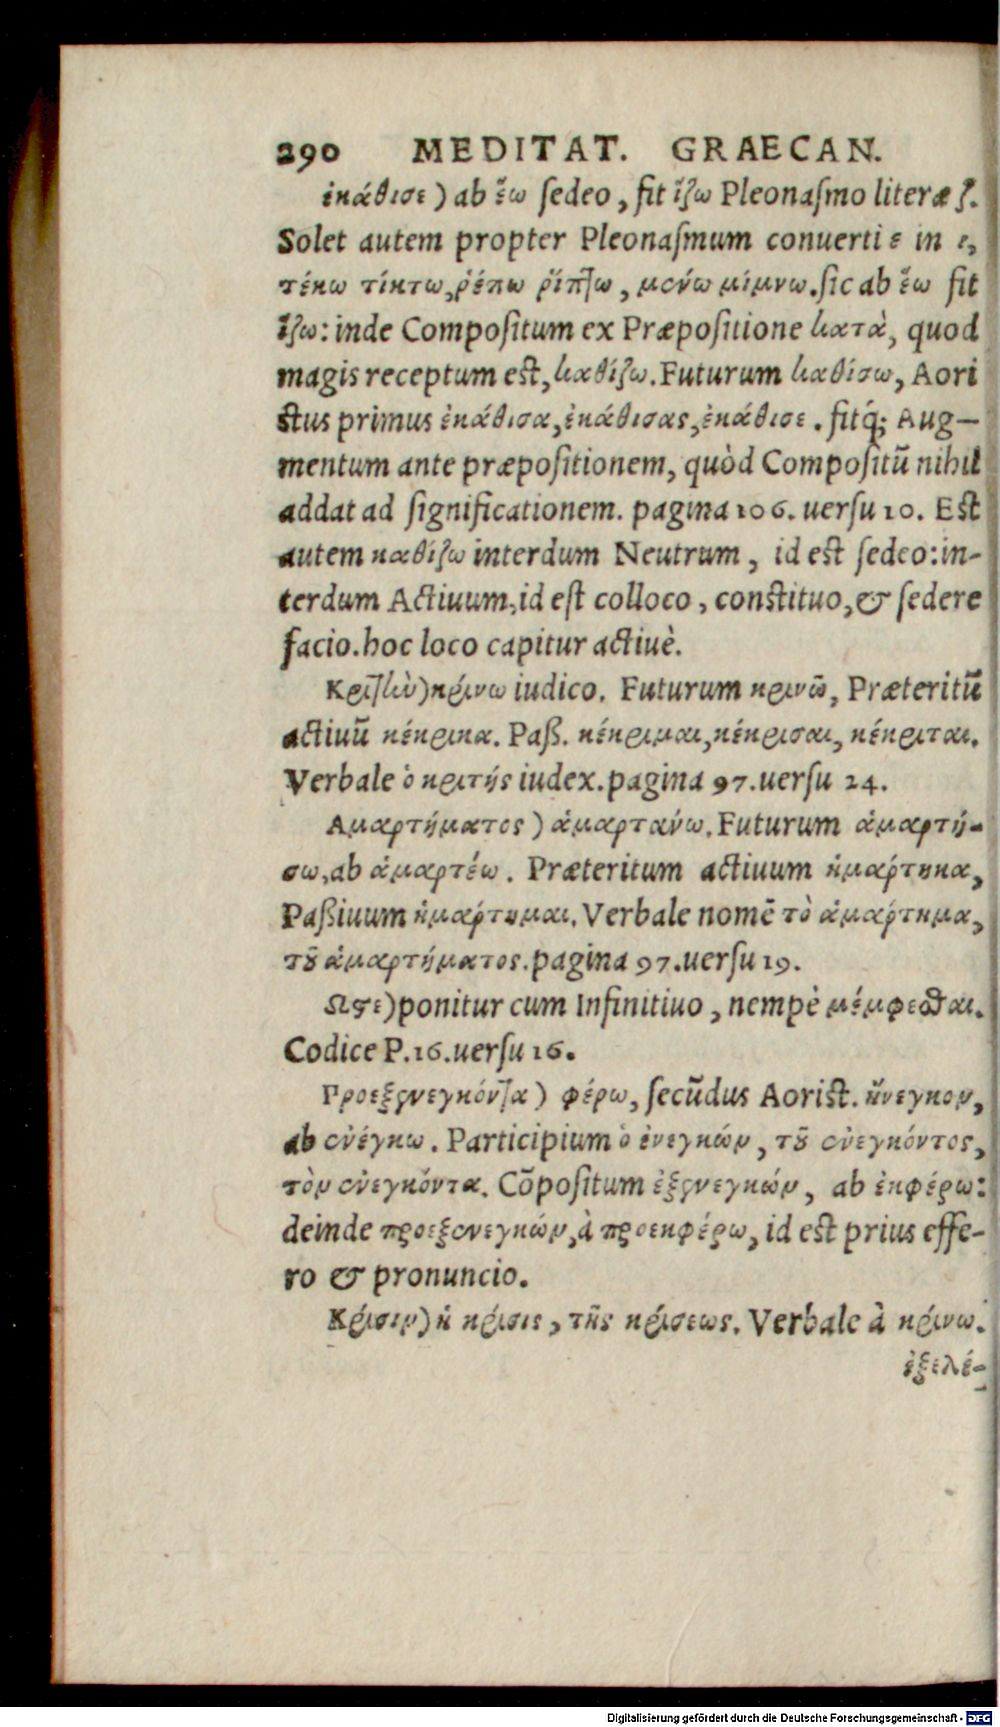 290 MEDITAT. GRAECAN.
ἐκάθισε) ab ἕω ſedeo, fit ἵζω Pleonaſmo literæ ζ.
Solet autem propter Pleonaſmum conuerti ε in ι,
τέκω τίκτω, ῥέπω ῥίπτω, μένω μίμνω. ſic ab ἕω fit
ἵζω: inde Compoſitum ex Præpoſitione κατὰ, quod
magis receptum eſt, καθίζω. Futurum καθίσω, Aori
ſtus primus ἐκάθισα, ἐκάθισας, ἐκάθισε. fitq́; Aug-
mentum ante præpoſitionem, quòd Compoſitū nihil
addat ad ſignificationem. pagina 106. uerſu 10. Eſt
autem καθίζω interdum Neutrum, id eſt ſedeo: in-
terdum Actiuum, id eſt colloco, conſtituo, & ſedere
facio. hoc loco capitur actiuè.
Κριτὴν) κρίνω iudico. Futurum κρινῶ, Præteritū
actiuū κέκρικα. Paß. κέκριμαι, κέκρισαι, κέκριται.
Verbale ὁ κριτής iudex. pagina 97. uerſu 24.
Αμαρτήματος) ἁμαρτανω. Futurum ἁμαρτή-
σω, ab ἁμαρτέω. Præteritum actiuum ἡμάρτηκα,
Paßiuum ἡμάρτημαι. Verbale nomē τὸ ἁμάρτημα,
τοῦ ἁμαρτήματος. pagina 97. uerſu 19.
Ωστε) ponitur cum Infinitiuo, nempè μέμφεσθαι.
Codice P. 16. uerſu 16.
Προεξενεγκόντα) φέρω, ſecūdus Aoriſt. ἤνεγκον,
ab ἐνέγκω. Participium ὁ ἐνεγκών, τοῦ ἐνεγκόντος,
τὸν ἐνεγκόντα. Cōpoſitum ἐξενεγκών, ab ἐκφέρω:
deinde προεξενεγκών, à προεκφέρω, id eſt prius effe-
ro & pronuncio.
Κρίσιν) ἡ κρίσις, τῆς κρίσεως. Verbale à κρίνω.
ἐξελέ-
Digitalisierung gefördert durch die Deutsche Forschungsgemeinschaft - DFG